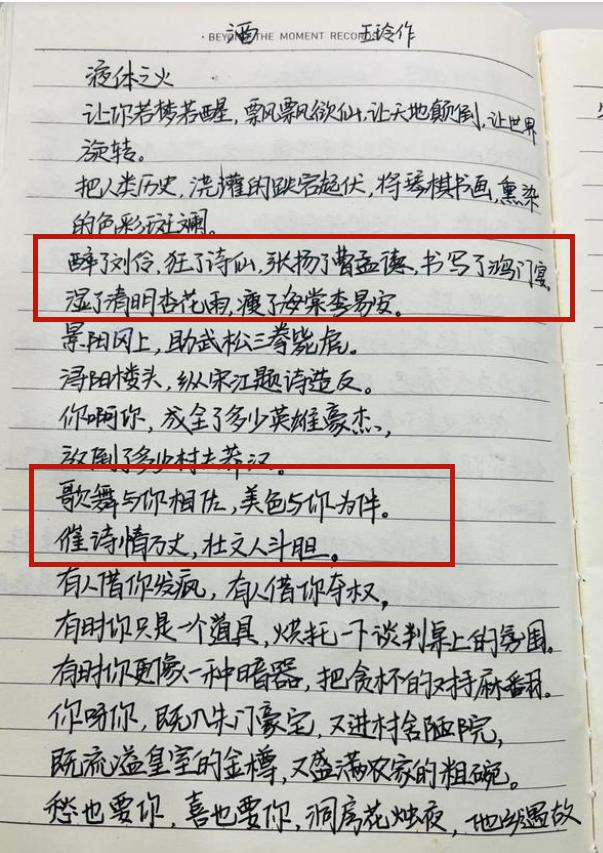 · BEYOND THE MOMENT RECORD
酒 王玲作
液体之火
让你若梦若醒,飘飘欲仙,让天地颠倒,让世界
旋转。
把人类历史,浇灌的跌宕起伏,将琴棋书画,熏染
的色彩斑斓。
醉了刘伶,狂了诗仙,张扬了曹孟德,书写了鸿门宴
湿了清明杏花雨,瘦了海棠李易安。
景阳冈上,助武松三拳毙虎。
浔阳楼头,纵宋江题诗造反。
你啊你,成全了多少英雄豪杰,
放倒了多少村夫莽汉。
歌舞与你相佐,美色与你为伴。
催诗情万丈,壮文人斗胆。
有人借你发疯,有人借你夺权,
有时你只是一个道具,烘托一下谈判桌上的氛围。
有时你更像一种暗器,把贪杯的对持麻翻。
你呀你,既入朱门豪宅,又进村舍陋院,
既流溢皇室的金樽,又盛满农家的粗碗。
愁也要你,喜也要你,洞房花烛夜,他乡遇故